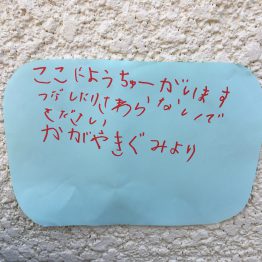 ここにようちゅーがいます
つぶしたりさわらないで
ください
かがやきぐみより